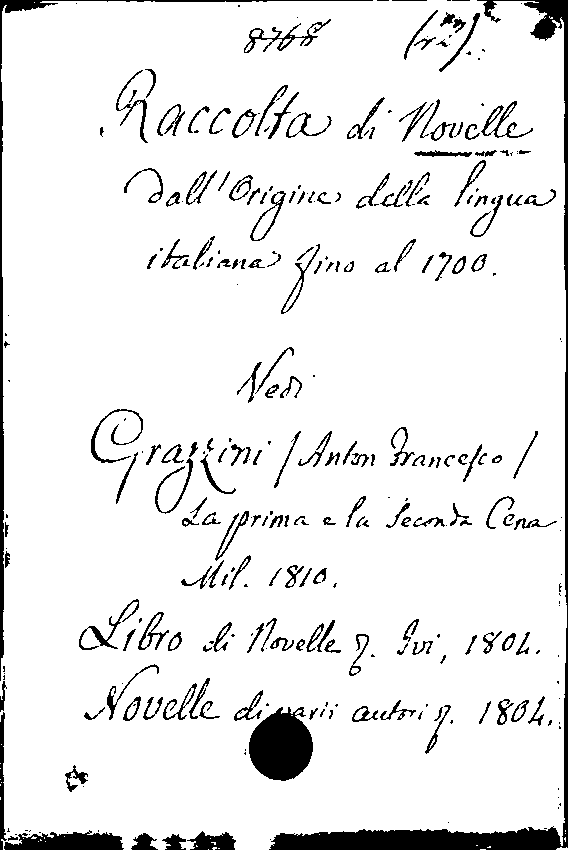 8768
Raccolta di Novelle
dall'Origine della lingua
italiana fino al 1700.
Vedi
Grazzini / Anton Francesco /
La prima e la Seconda Cena
Mil. 1810.
Libro di Novelle Ivi, 1804.
Novelle di varii autori 1804.